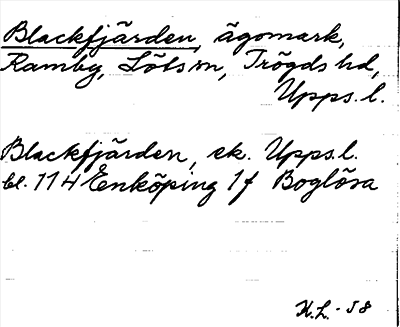 Blackfjärden, ägomark,
Ramby, Löts sn, Trögds hd,
Upps. l.
Blackfjärden, ek. Upps. l.
bl. 114 Enköping 1f Boglösa
H.L. - 58